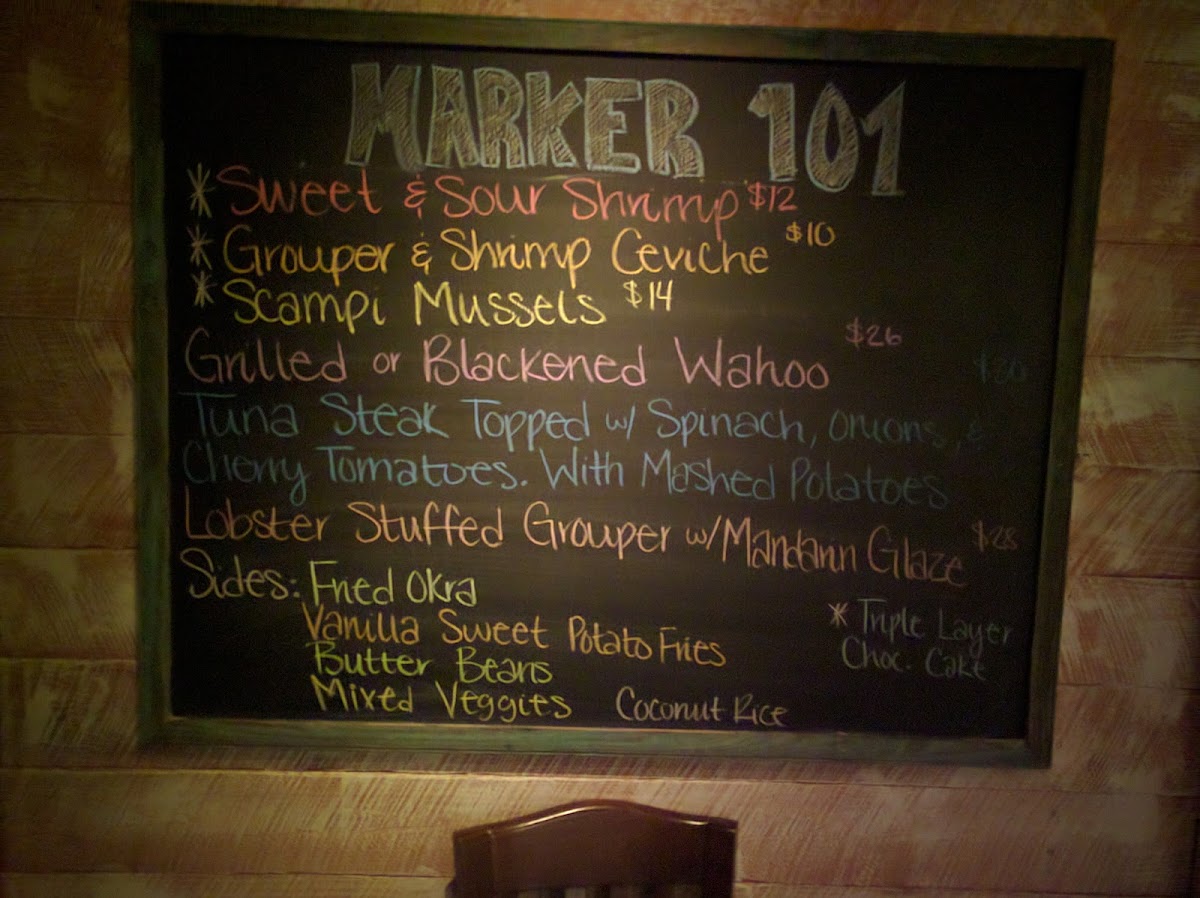 MARKER 101
* Sweet & Sour Shrimp $12
* Grouper & Shrimp Ceviche $10
* Scampi Mussels $14
Grilled or Blackened Wahoo $26
Tuna Steak Topped w/ Spinach, onions, &
Cherry Tomatoes. With Mashed Potatoes
Lobster Stuffed Grouper w/ Mandarin Glaze $28
Sides: Fried Okra
Vanilla Sweet Potato Fries
Butter Beans
Mixed Veggies Coconut Rice
* Triple Layer
Choc. Cake